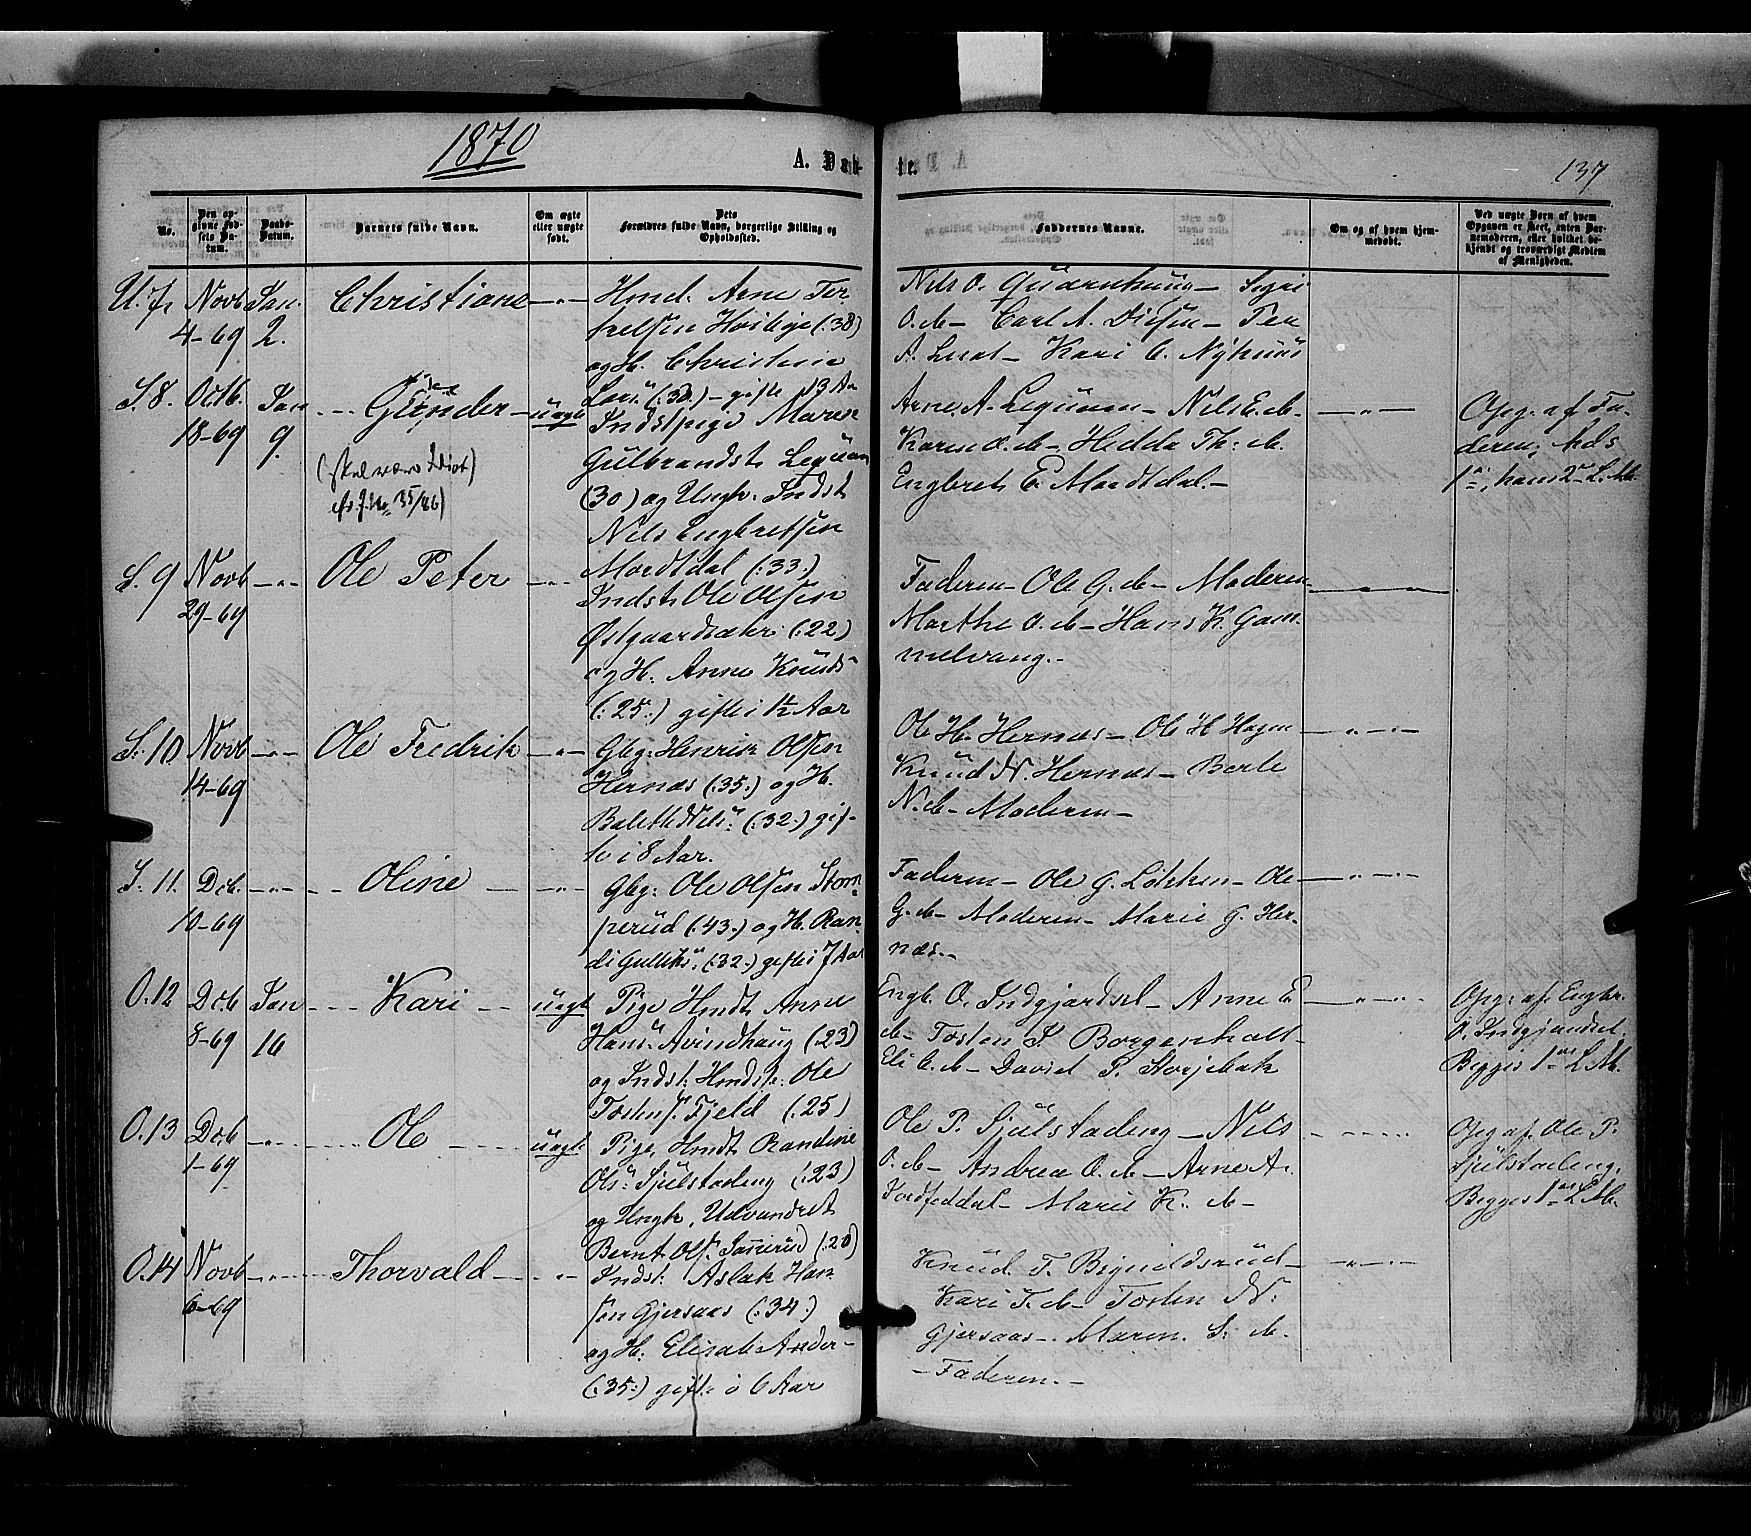 1870
A. Dåb-
te.
137
No.
Den op-
givne Fød-
sels Da-
tum.
Daabs-
Datum.
Barnets fulde Navn.
Om ægte
eller uægte
født.
Dets
Forældres fulde Navn, borgerlige Stilling og
Opholdssted.
Faddernes Navne.
Om og af hvem hjem-
medøbt.
Ved uægte Børn af hvem
Opgaven er skeet, enten Bar-
nemoderen, eller hvilket be-
kjendt og troværdigt Medlem
af Menigheden.
U. 7. Novb 4-69
Jan. 2.
Christiane
Hmd. Arne Ter-
kelsen
(:38)
og H. Christine
Lars: (:38.) - gifte 13 Aar
Nils O. Quarnhuus - Sigri
O. db - Carl A. Diesen - Per
A. Lund - Kari C. Nyhuus
S. 8. Octb. 18-69
Jan 9.
Gunder
(skal være Idiot)
35/86)
uægte
Indst pige Maren
Gulbrandsd. Lequam
(30) og Ungk. Indst
Nils Engbretsen
Mordtdal (:33:)
Arne A. Lequam - Nils E. db -
Karen O. db - Hedda Th: db.
Engbret E. Mordtdal. -
Opg: af Fa-
deren;
1ste, hans 2det L. M.
S. 9 Novb 29-69
Ole Peter
Indst: Ole Olsen
Østgaardsæter (:22)
og H. Anne Knuds
(:25:) gifte i 1½ Aar
Faderen - Ole G. db - Moderen
Marthe O. db - Hans K. Gam-
melvang. -
S. 10 Novb 14-69
Ole Fredrik
Gbg: Henrik Olsen
Hernæs (:35:) og H.
Nils: (:32:) gif-
te i 8 Aar.
Ole H. Hernæs - Ole H Hagen
Knud N. Hernæs - Berte
N. db - Moderen -
S. 11. Dcb. 10-69
Oline
Gbg: Ole Olsen Stom-
perud (:43:) og H. Ran-
di Gulliks: (:32:) gifte i 7 Aar
Faderen - Ole G. Løkken - Ole
G. db - Moderen - Marie G. Her-
næs. -
O. 12 Dcb 8-69
Jan 16
Kari
uægt
Pige Hmdt Anne
Hans: Avindhaug (:23)
og Indst: Hmdst: Ole
Tostens. Fjeld (:25)
Engb. O. Indgjærdsel - Anne E
db - Tosten S. Borgenholt -
Eli C. db - David P. Storjebak
Opg: af Engbr.
O. Indgjærdsel.
Begges 1ste L.M.
O. 13 Dcb 1-69
Ole
uægt
Pige, Hmdt Randine
Ols: Sjulstadeng (:23)
og Ungk. Udvandret
Bernt Ols. (:20)
Ole P. Sjulstadeng - Nils
O. db - Andrea O. db - Arne A.
- Marie K. db -
Opg af Ole P.
Sjulstadeng.
Begges 1ste L.M.
O. 14 Novb 6-69
Thorvald
Indst: Aslak Han-
sen Gjersaas (:34:)
og H: Elisab: Ander-
(:35:) gifte i 6 Aar
Knud T. Bignildsrud -
Kari T. db - Tosten N.
Gjersaas - Maren S: db.
- Faderen. -